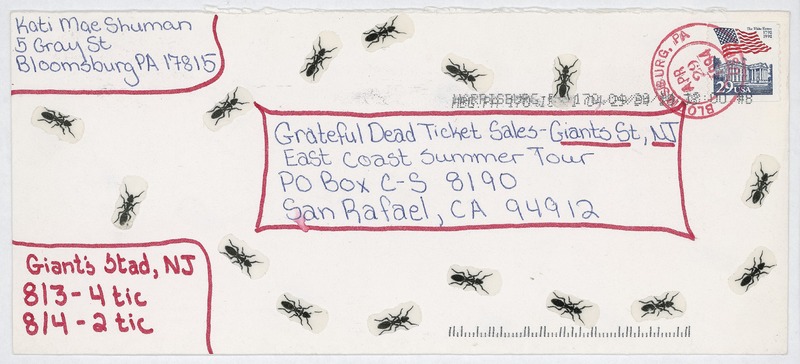 Kati Mae Shuman
5 Gray St
Bloomsburg PA 17815
BLOOMSBURG, PA
APR
29
1994
The White House
1792
1992
29 USA
04/29/94 18:00 #8
Grateful Dead Ticket Sales - Giants St, NJ
East Coast Summer Tour
PO Box C-S 8190
San Rafael, CA 94912
Giant's Stad, NJ
8/3 - 4 tic
8/4 - 2 tic